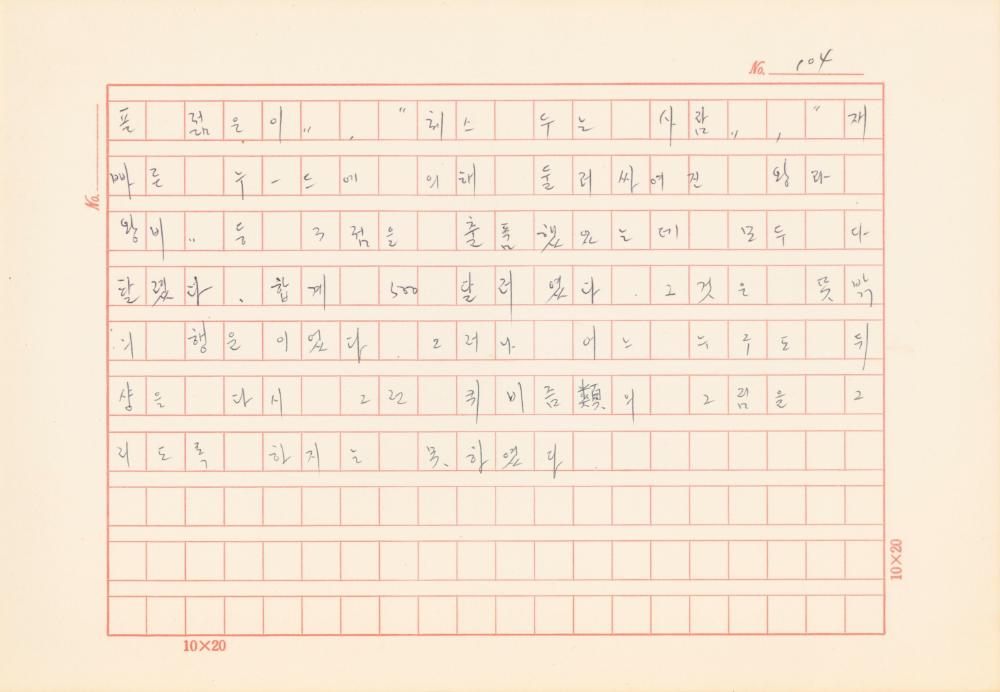 No. 104
픈 젊은이〃, 〃체스 두는 사람〃, 〃재
빠른 누ー드에 의해 둘러싸여진 왕과
왕비〃 등 3점을 출품했었는데 모두 다
팔렸다. 합계 500 달러였다. 그것은 뜻밖
의 행운이었다. 그러나 어느 누구도 뒤
샹을 다시 그런 퀴비즘類의 그림을 그
리도록 하지는 못하였다.
No.
10×20
10×20